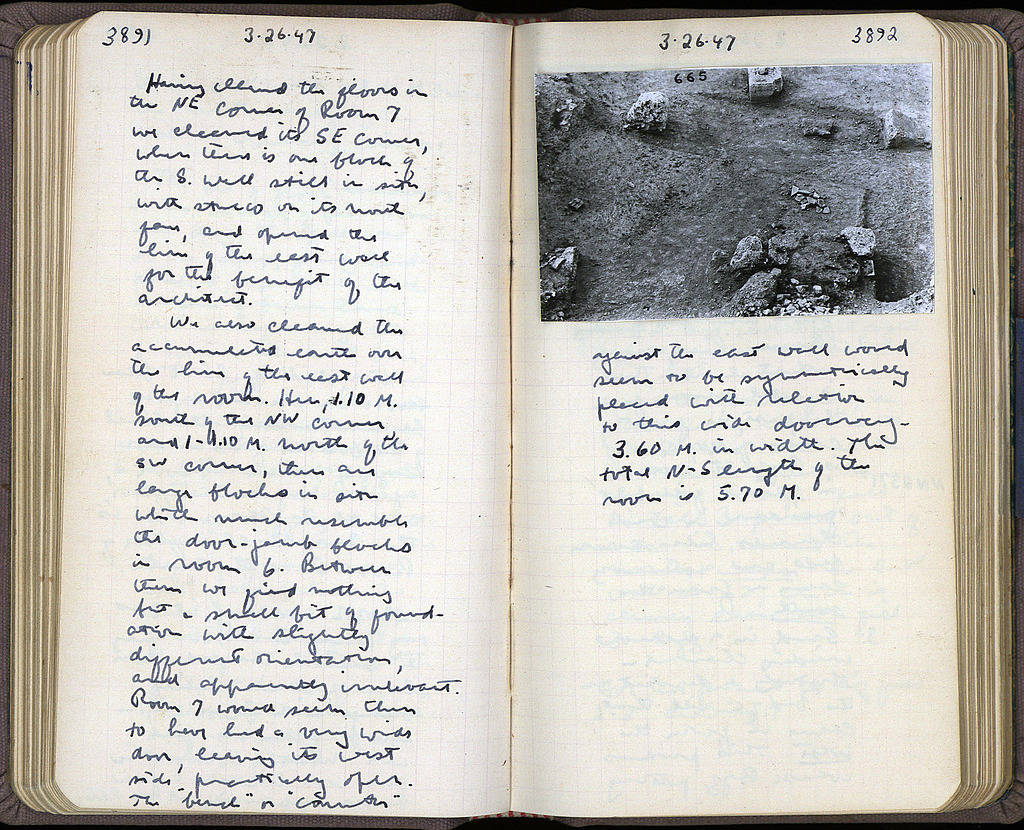 3891
3·26·47
Having cleaned the floors in
the NE corner of Room 7
we cleaned its SE corner,
where there is one block of
the S. wall still in situ,
with stucco on its north
face, and opened the
line of the east wall
for the benefit of the
architect.
We also cleaned the
accumulated earth over
the line of the west wall
of the room. Here, 1.10 M.
south of the NW corner,
and 1.10 M. north of the
SW corner, there are
large blocks in situ
which much resemble
the door-jamb blocks
in room 6. Between
them we find nothing
but a small bit of found-
ation with slightly
different orientation,
and apparently irrelevant.
Room 7 would seem then
to have had a very wide
door, leaving its west
side practically open.
The "bench" or "counter"
3·26·47
3892
665
against the east wall would
seem to be symmetrically
placed with relation
to this wide doorway-
3.60 M. in width. The
total N-S length of the
room is 5.70 M.